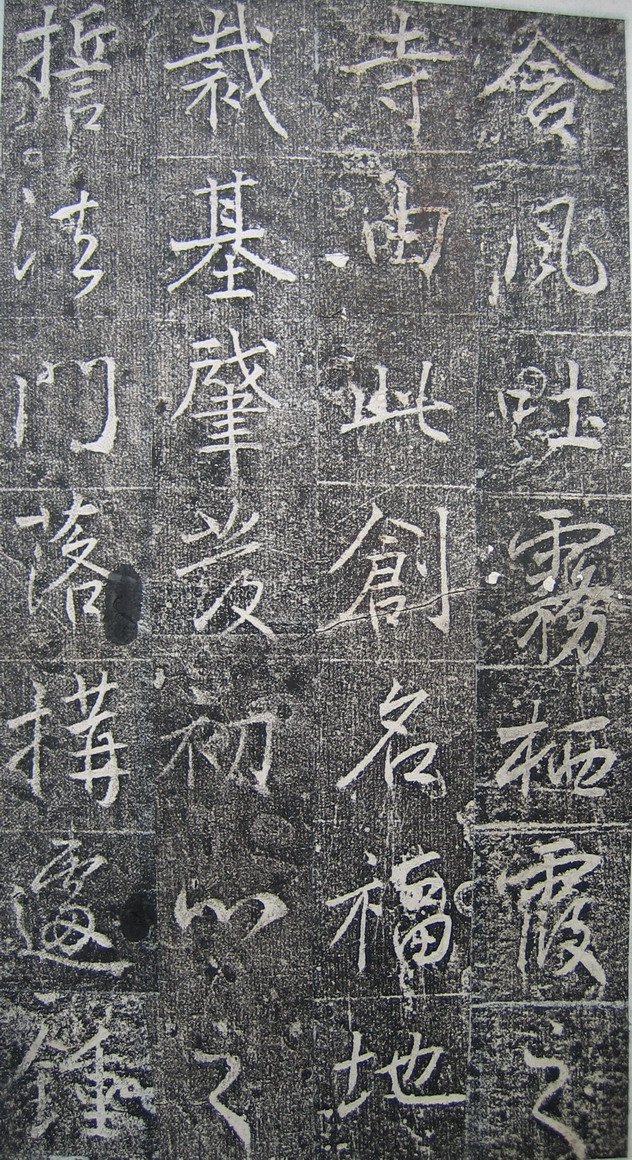 含風吐霧栖霞之
寺由此創名福地
裁基肇發初心之
誓法門落構遽鍾